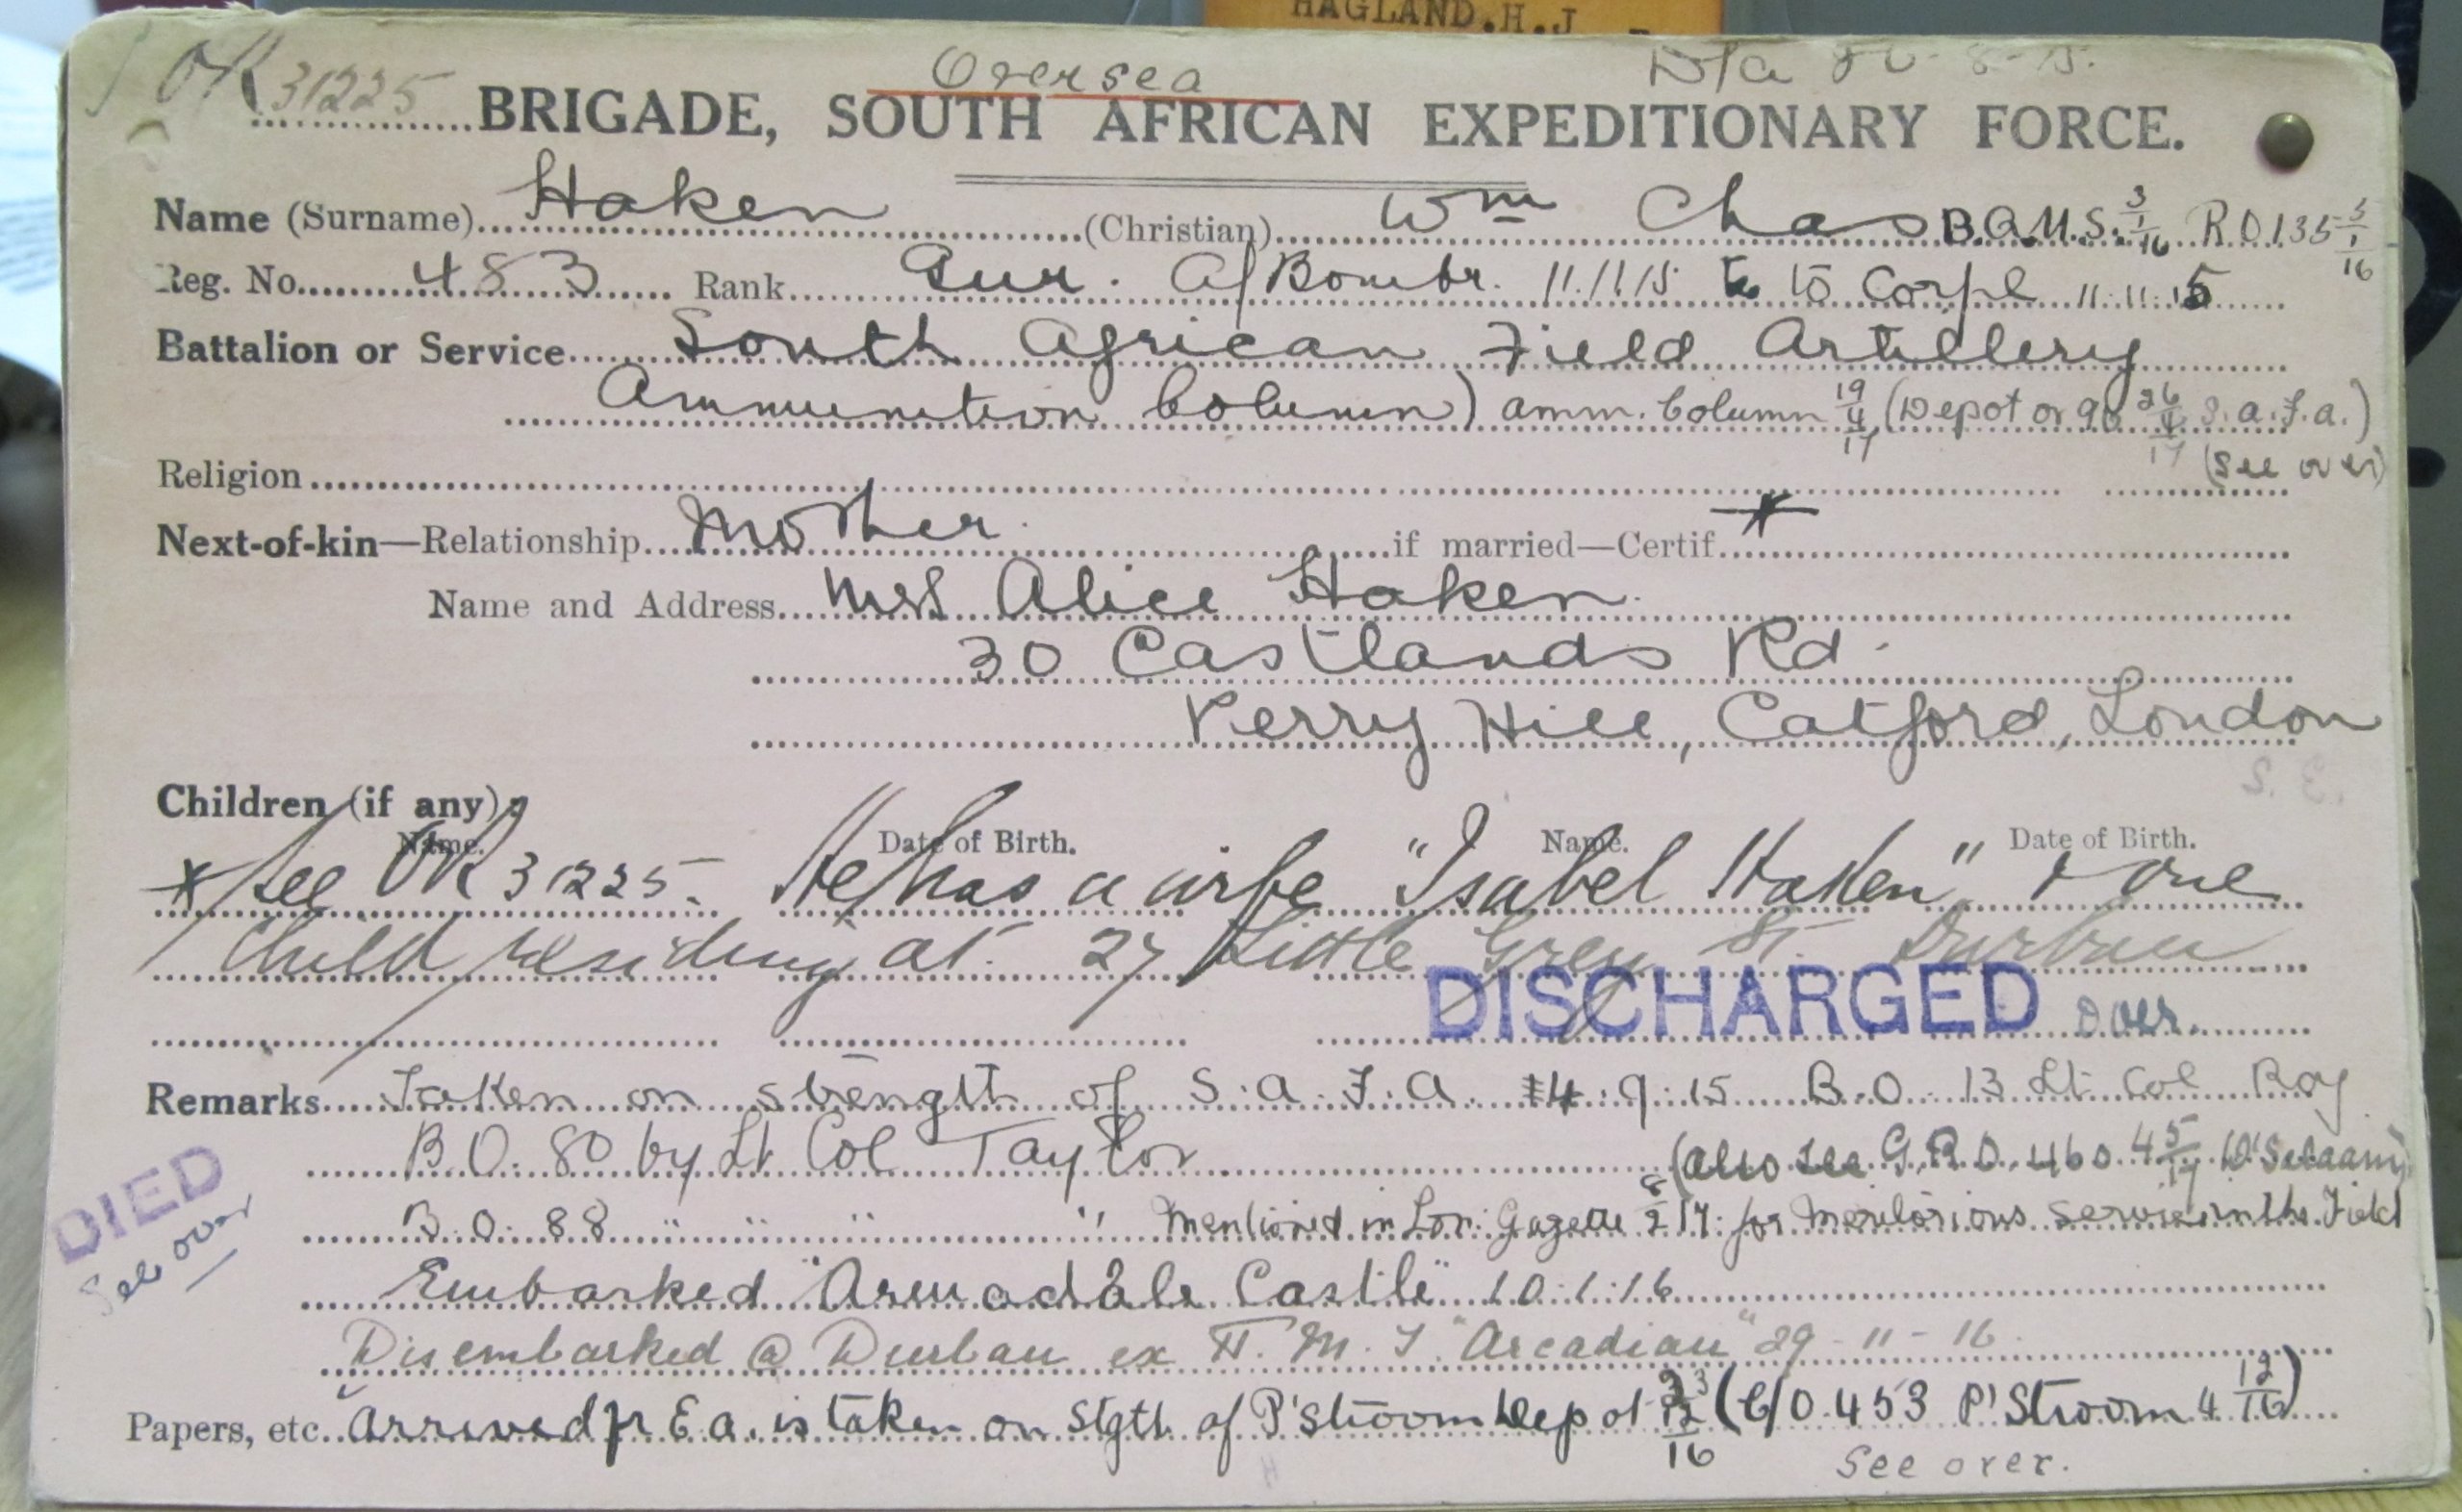 HAGLAND.H.J
OK 31225 Oversea D/a 8-15.
BRIGADE, SOUTH AFRICAN EXPEDITIONARY FORCE.
Name (Surname) Haken (Christian) Wm Chas B.Q.M.S. 3/1/16 R.O 135 5/1/16
Reg. No. 483 Rank Gur. A/Bombr. 11.11.15 to Corpl 11.11.15
Battalion or Service South African Field Artillery
Ammunition Column) Amm. Column 19/4/17 (Depot or 90 26/4/17 S.A.F.A.)
(See over)
Religion
Next-of-kin—Relationship Mother if married—Certif. *
Name and Address Mrs Alice Haken
30 Castlands Rd.
Perry Hill, Catford, London
S. E.
Children (if any):
Name. Date of Birth. Name. Date of Birth.
* See OK 31225. He has a wife "Isabel Haken" & one
child residing at 27 Little Grey St. Durban
DISCHARGED over.
Remarks Taken on strength of S.A.F.A. 14.9.15 B.O. 13 Lt Col Roy
B.O. 80 by Lt Col Taylor (also see G.R.O. 460 4/5/17 D'Salaam)
DIED
See over
B.O. 88 " " " " Mentioned in Lon: Gazette 8/2/17: for Meritorious Service in the Field
Embarked "Armadale Castle" 10.1.16
Disembarked @ Durban ex H.M.T "Arcadian" 29-11-16
Papers, etc. Arrived fr E.A. is taken on Stgth of P'stroom Depot 3/12/16 (C/O 453 P'Stroom 4 12/16)
See over.